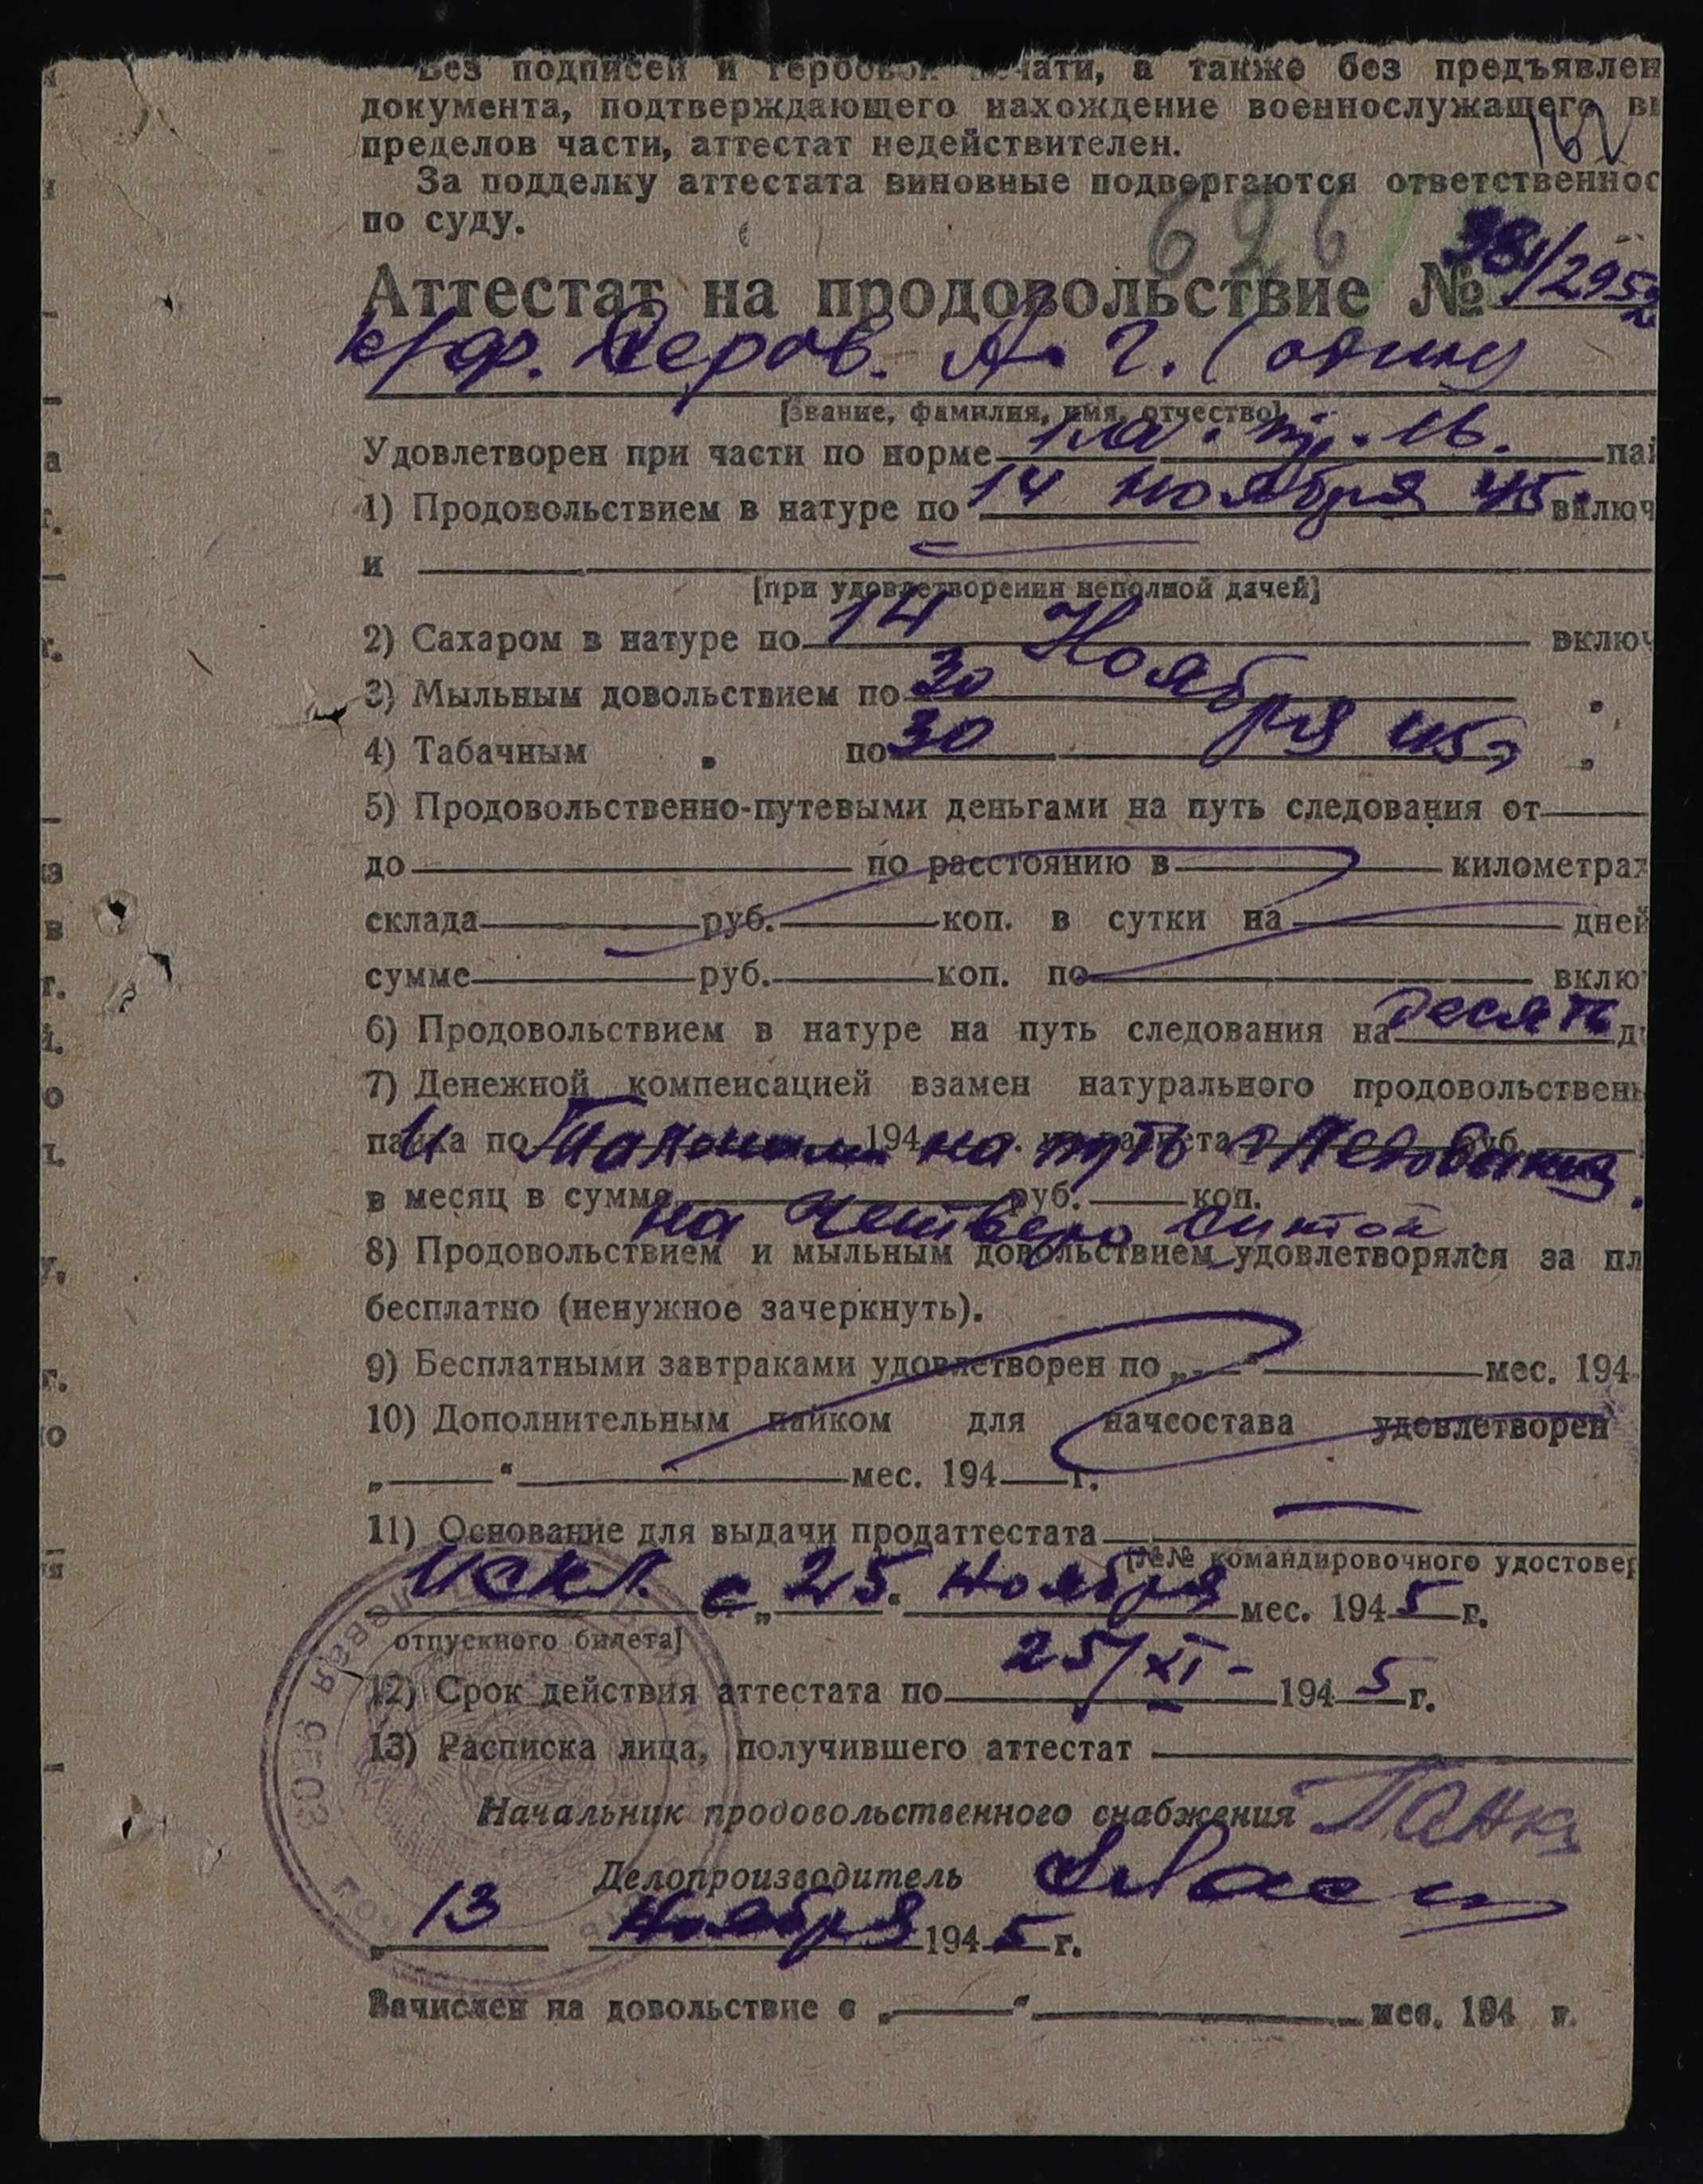 Без подписей и гербовой печати, а также без предъявлен
документа, подтверждающего нахождение военнослужащего вн
162
пределов части, аттестат недействителен.
За подделку аттестата виновные подвергаются ответственнос
по суду.
626
Аттестат на продовольствие № 381/295
к/др. Серов. А. Г. (один)
[звание, фамилия, имя, отчество]
Удовлетворен при части по норме пай
1) Продовольствием в натуре по 14 ноября 45. включ
и
[при удовлетворении неполной дачей]
2) Сахаром в натуре по 14 включ
3) Мыльным довольствием по 30 Ноября 45 г „
4) Табачным „ по 30 „
5) Продовольственно-путевыми деньгами на путь следования от
до по расстоянию в километрах
склада руб. коп. в сутки на дней
сумме руб. коп. по включ
6) Продовольствием в натуре на путь следования на десять д
7) Денежной компенсацией взамен натурального продовольствен
пайка по 194 г. из расчета руб.
и Талонами на путь следования.
в месяц в сумме руб. коп.
на четверо суток
8) Продовольствием и мыльным довольствием удовлетворялся за пл
бесплатно (ненужное зачеркнуть).
9) Бесплатными завтраками удовлетворен по „ “ мес. 194
10) Дополнительным пайком для начсостава удовлетворен
„ “ мес. 194 г.
11) Основание для выдачи продаттестата
[№№ командировочного удостовер
искл. с „25“ ноября мес. 1945 г.
отпускного билета]
12) Срок действия аттестата по 25/XI- 1945 г.
13) Расписка лица, получившего аттестат
Начальник продовольственного снабжения
Делопроизводитель
„13 ноября 1945 г.
Зачислен на довольствие с „ “ мес. 194 г.